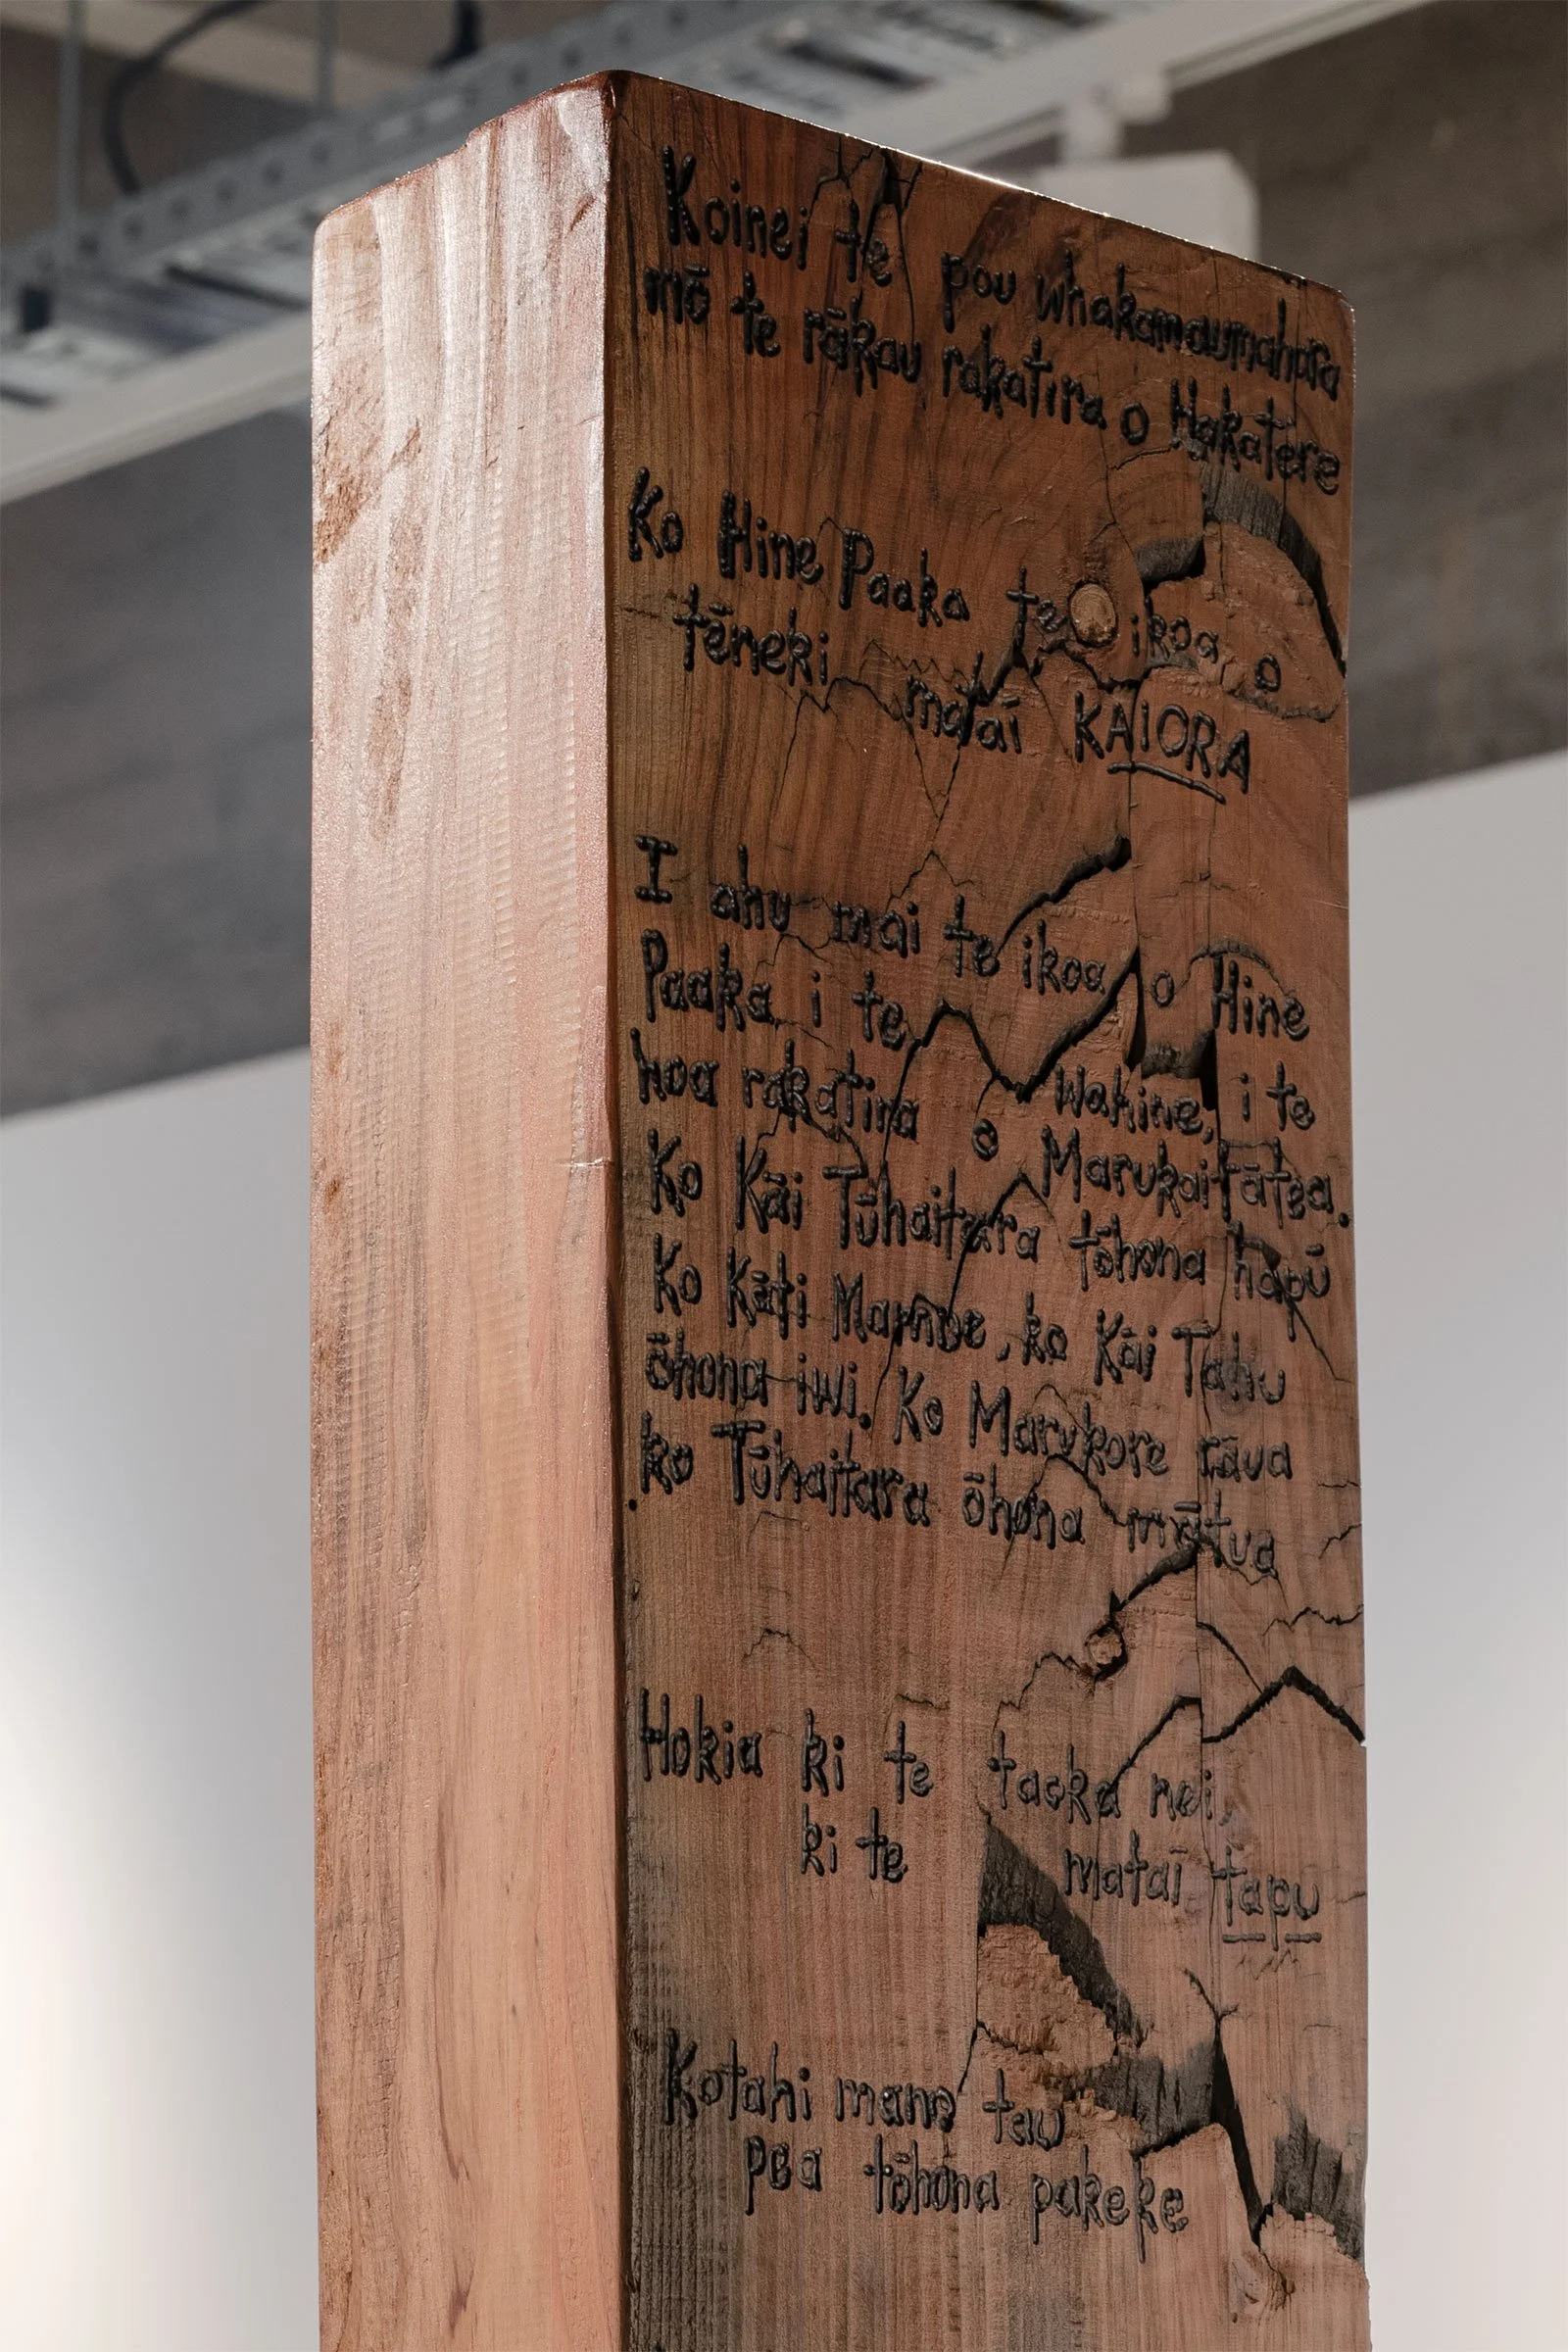 Koinei te pou whakamaumahara
mō te rākau rakatira o Hakatere
Ko Hine Paaka te ikoa o
tēneki mataī KAIORA
I ahu mai te ikoa o Hine
Paaka i te Wahine, i te
hoa rakatira o Marukaitātea.
Ko Kāi Tūhaitara tōhona hapū
Ko Kāti Mamoe, ko Kāi Tahu
ōhona iwi. Ko Marukore rāua
ko Tūhaitara ōhona mātua
Hokia ki te taoka nei,
ki te mataī tapu
Kotahi mano tau
pea tōhona pakeke